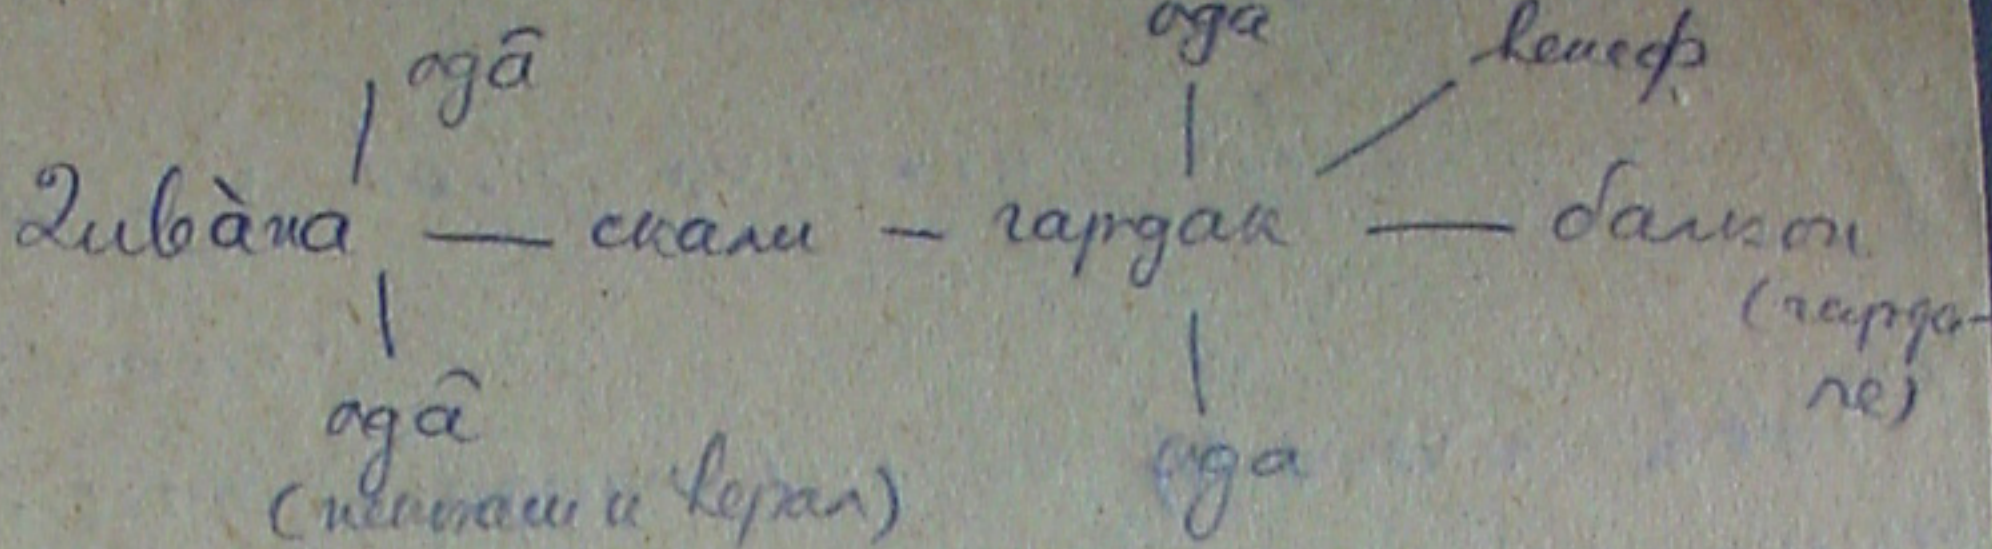 одâ ода кенеф
Дивàна — скали — чардак — балкон
(чарда-
че)
одâ ода
(пещташ и керал)